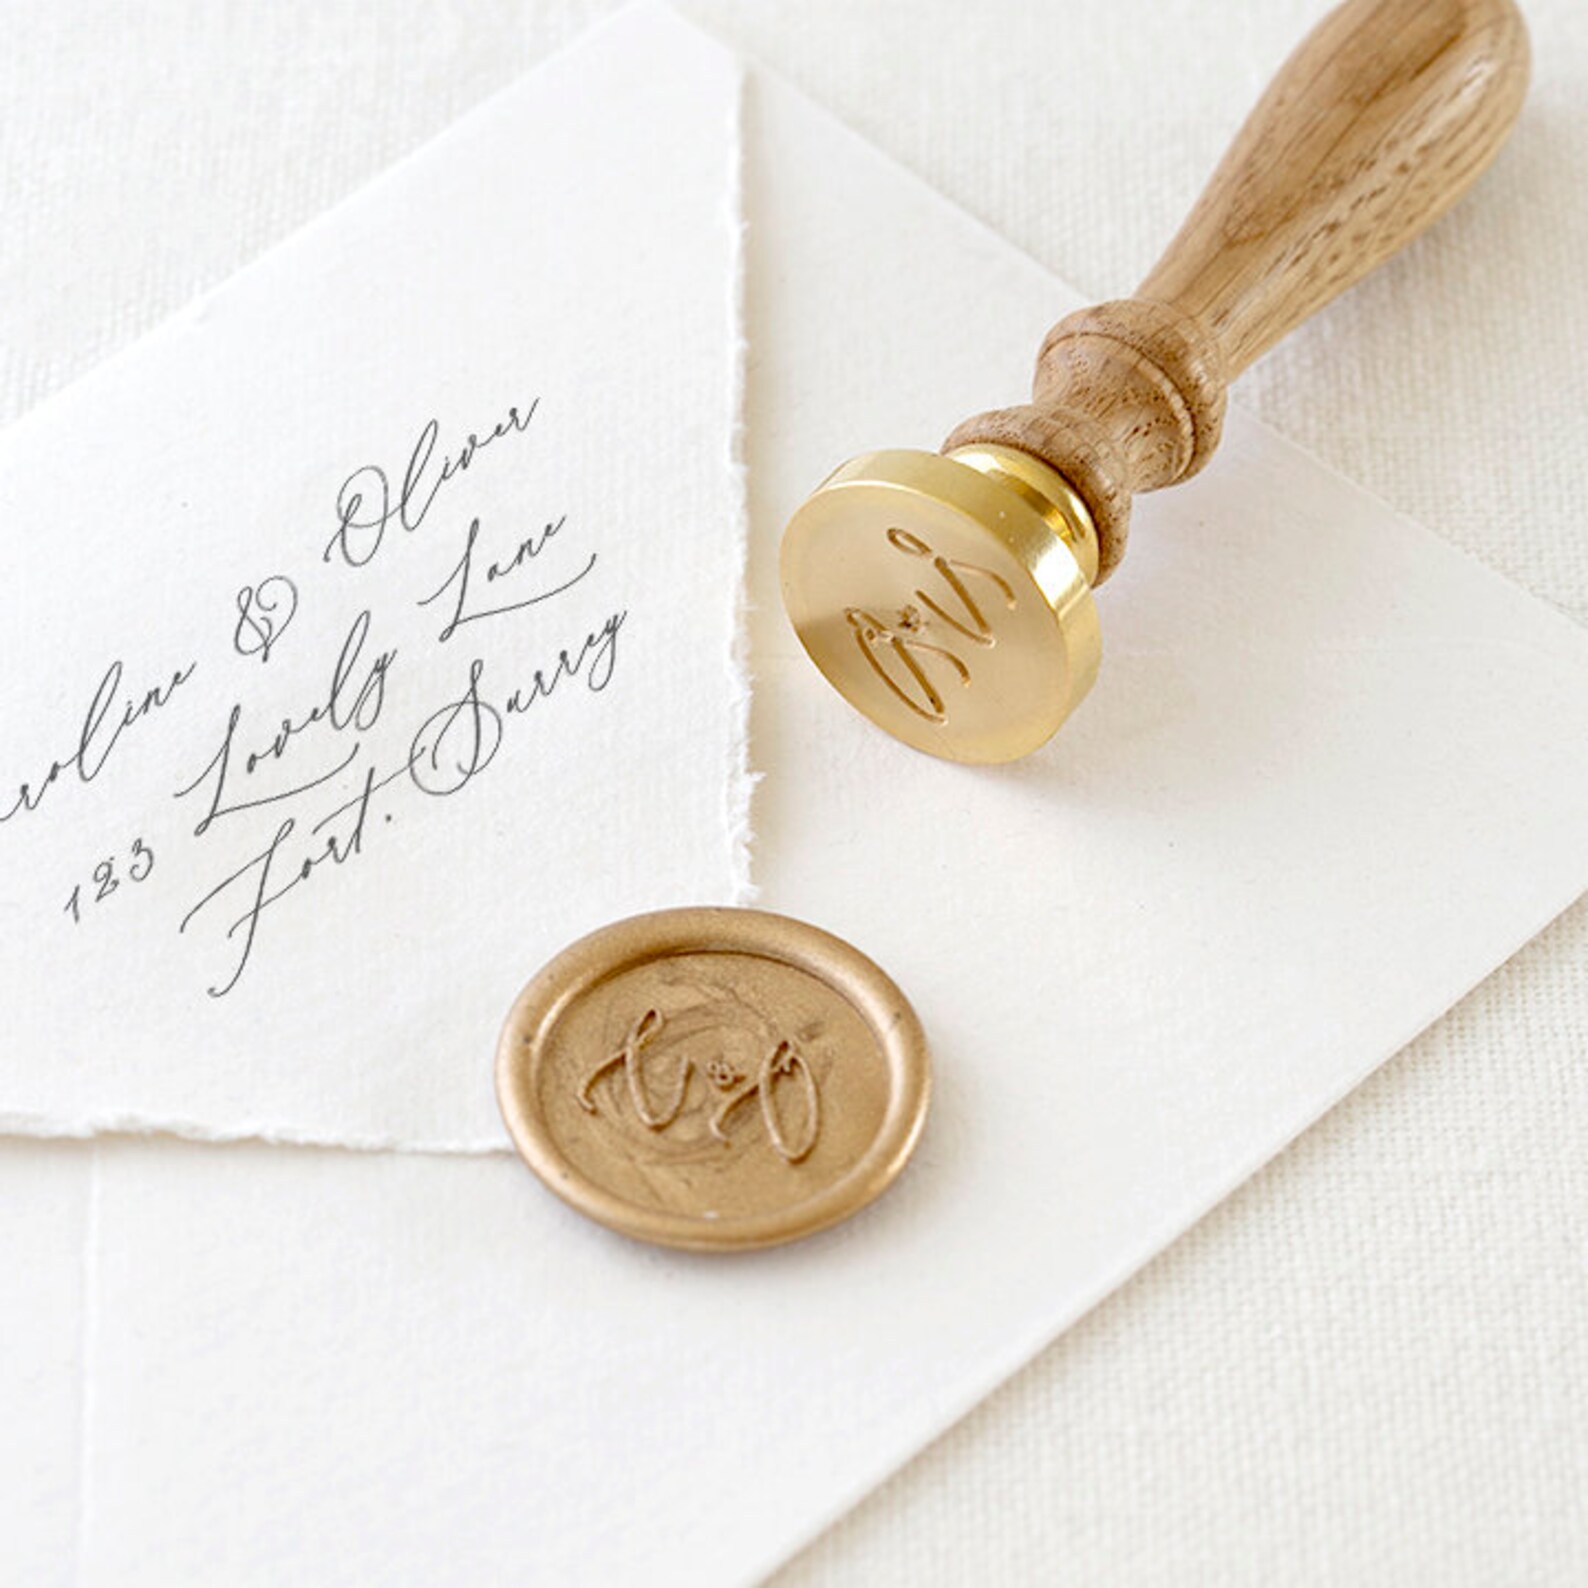 roline & Oliver
123 Lovely Lane
Fort. Surrey